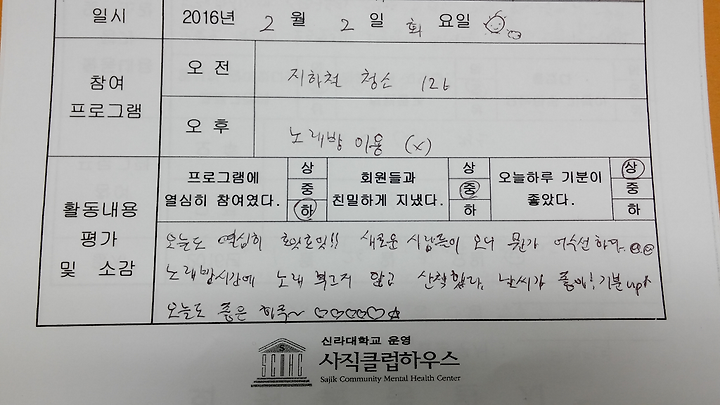 일시 2016년 2 월 2 일 화 요일
참여 프로그램
오 전 지하철 청소 126
오 후 노래방 이용 (x)
활동내용 평가 및 소감
프로그램에 열심히 참여였다. 상 중 하
회원들과 친밀하게 지냈다. 상 중 하
오늘하루 기분이 좋았다. 상 중 하
오늘도 열심히 !! 새로운 사람들이 오니 뭔가 어수선하다.
노래방시간에 노래 부르지 않고 산책했다. 날씨가 좋아! 기분up
오늘도 좋은 하루~ ♡♡♡♡♡☆
신라대학교 운영
SCMHC
사직클럽하우스
Sajik Community Mental Health Center